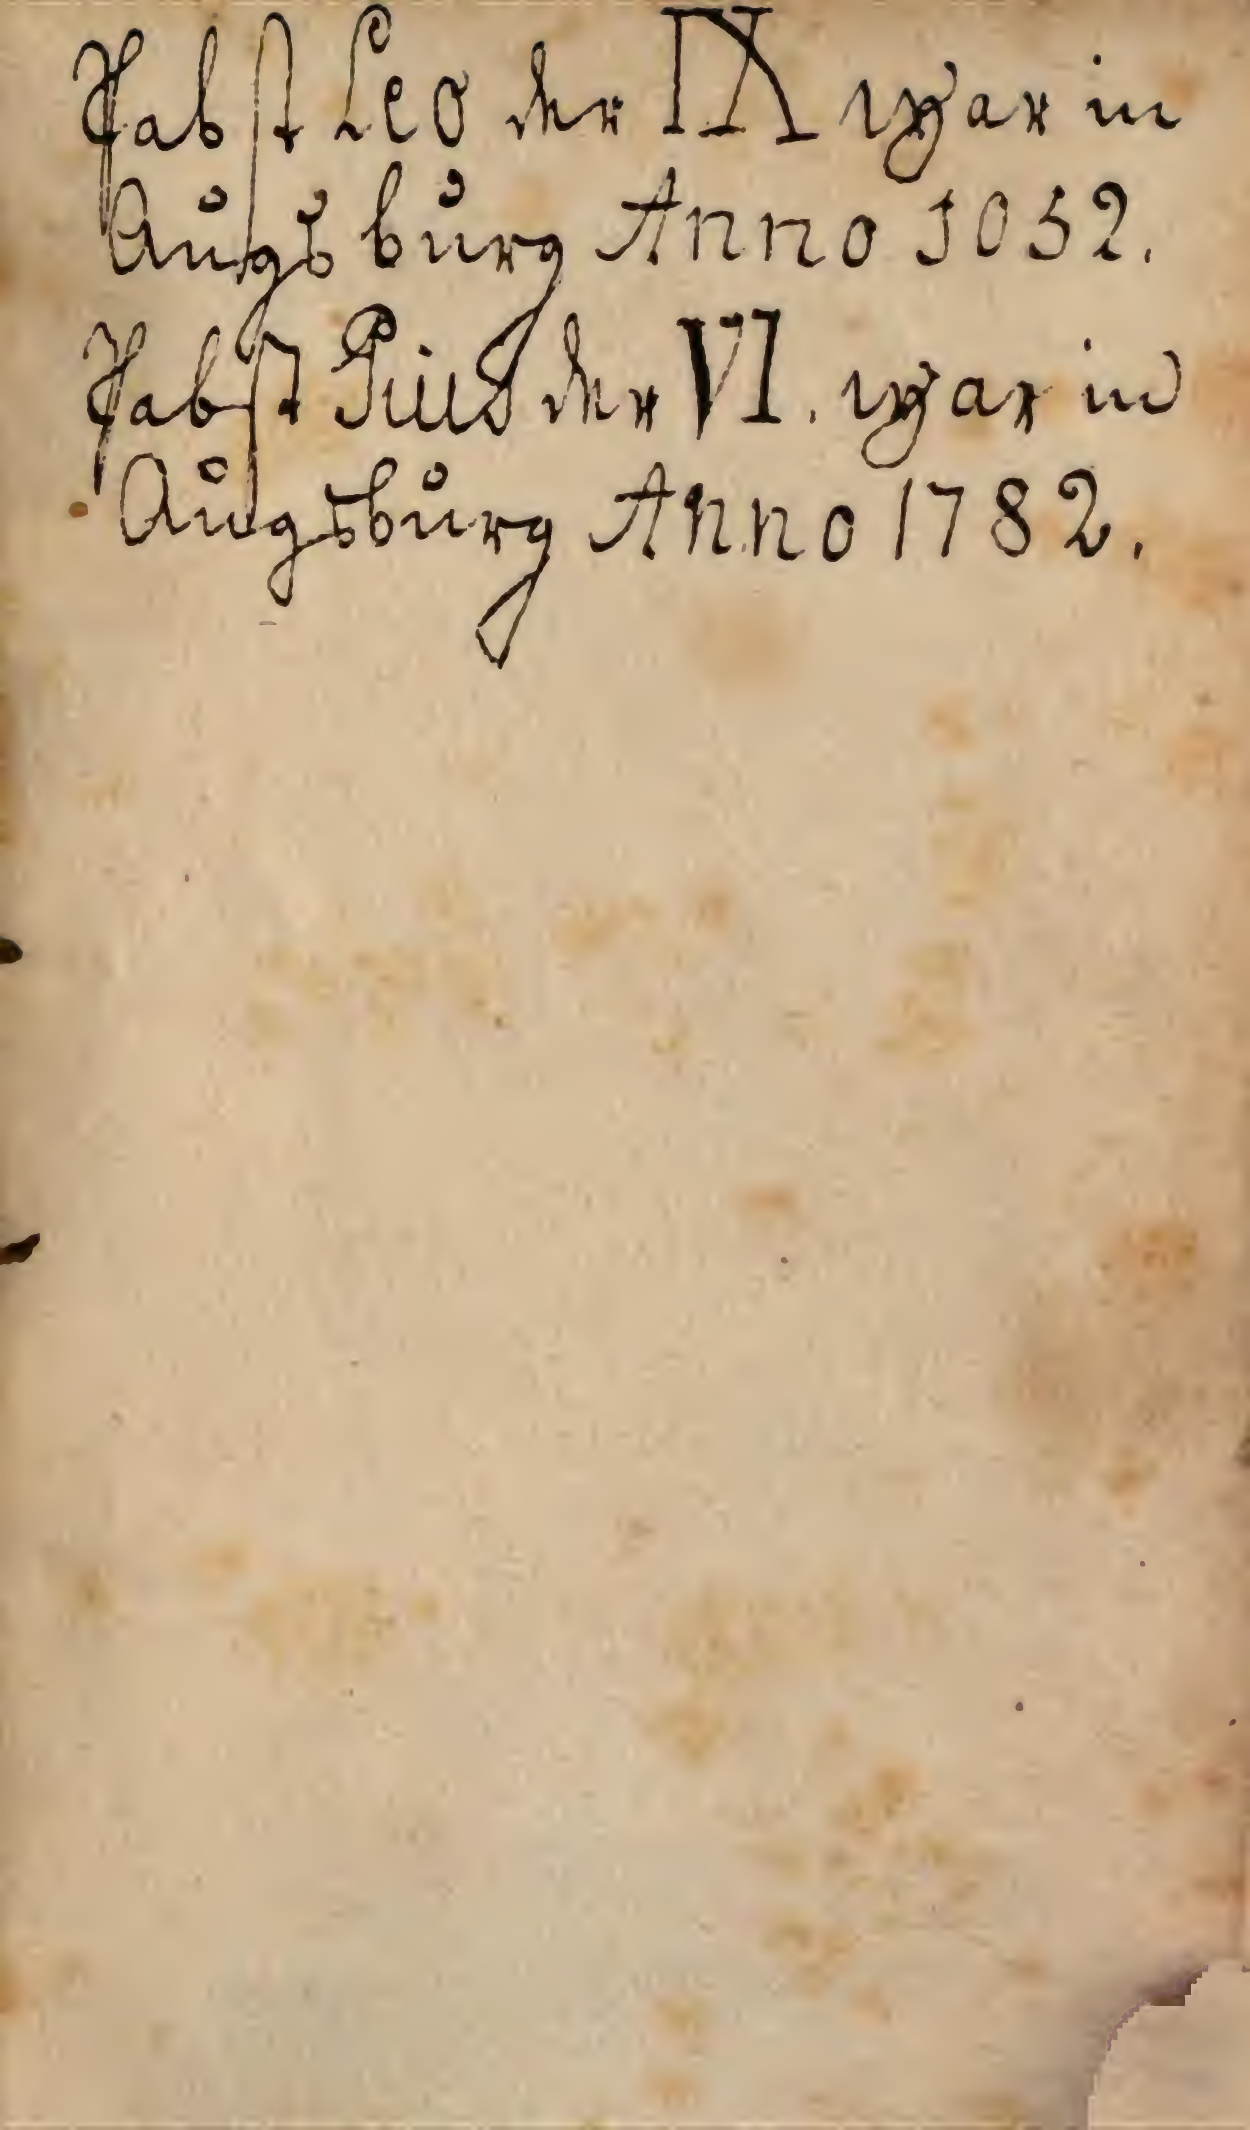 Pabst Leo der IX war in
Augsburg Anno 1052.
Pabst Pius der VI. war in
Augsburg Anno 1782.